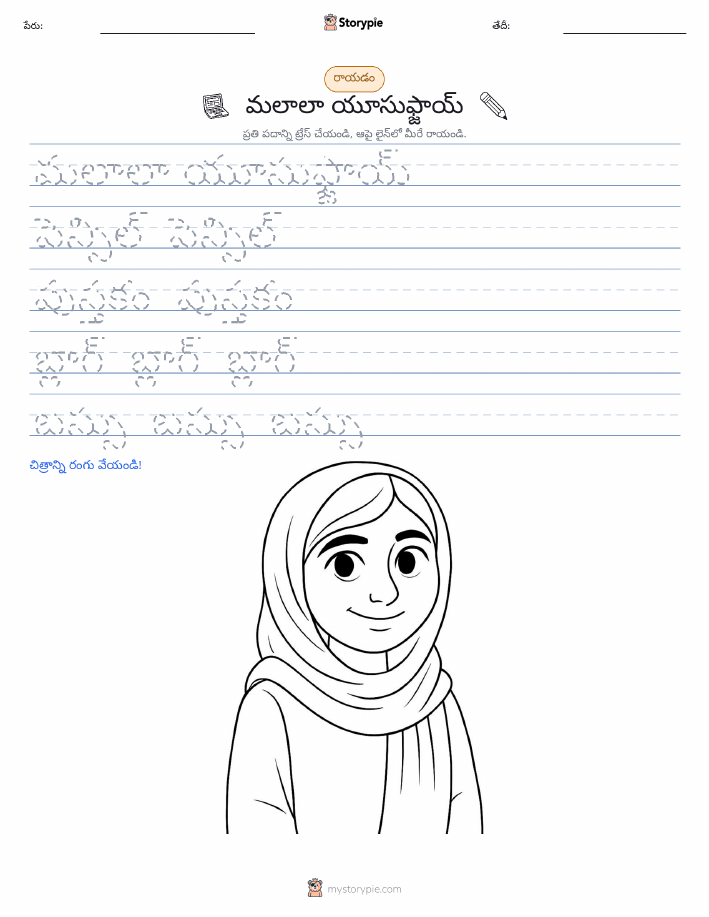 పేరు:
Storypie
తేదీ:
రాయడం
మలాలా యూసుఫ్జాయ్
ప్రతి పదాన్ని ట్రేస్ చేయండి, ఆపై లైన్‌లో మీరే రాయండి.
మలాలా యూసుఫ్జాయ్
పెన్సిల్ పెన్సిల్
పుస్తకం పుస్తకం
బ్లాగ్ బ్లాగ్ బ్లాగ్
బస్సు బస్సు బస్సు
చిత్రాన్ని రంగు వేయండి!
mystorypie.com